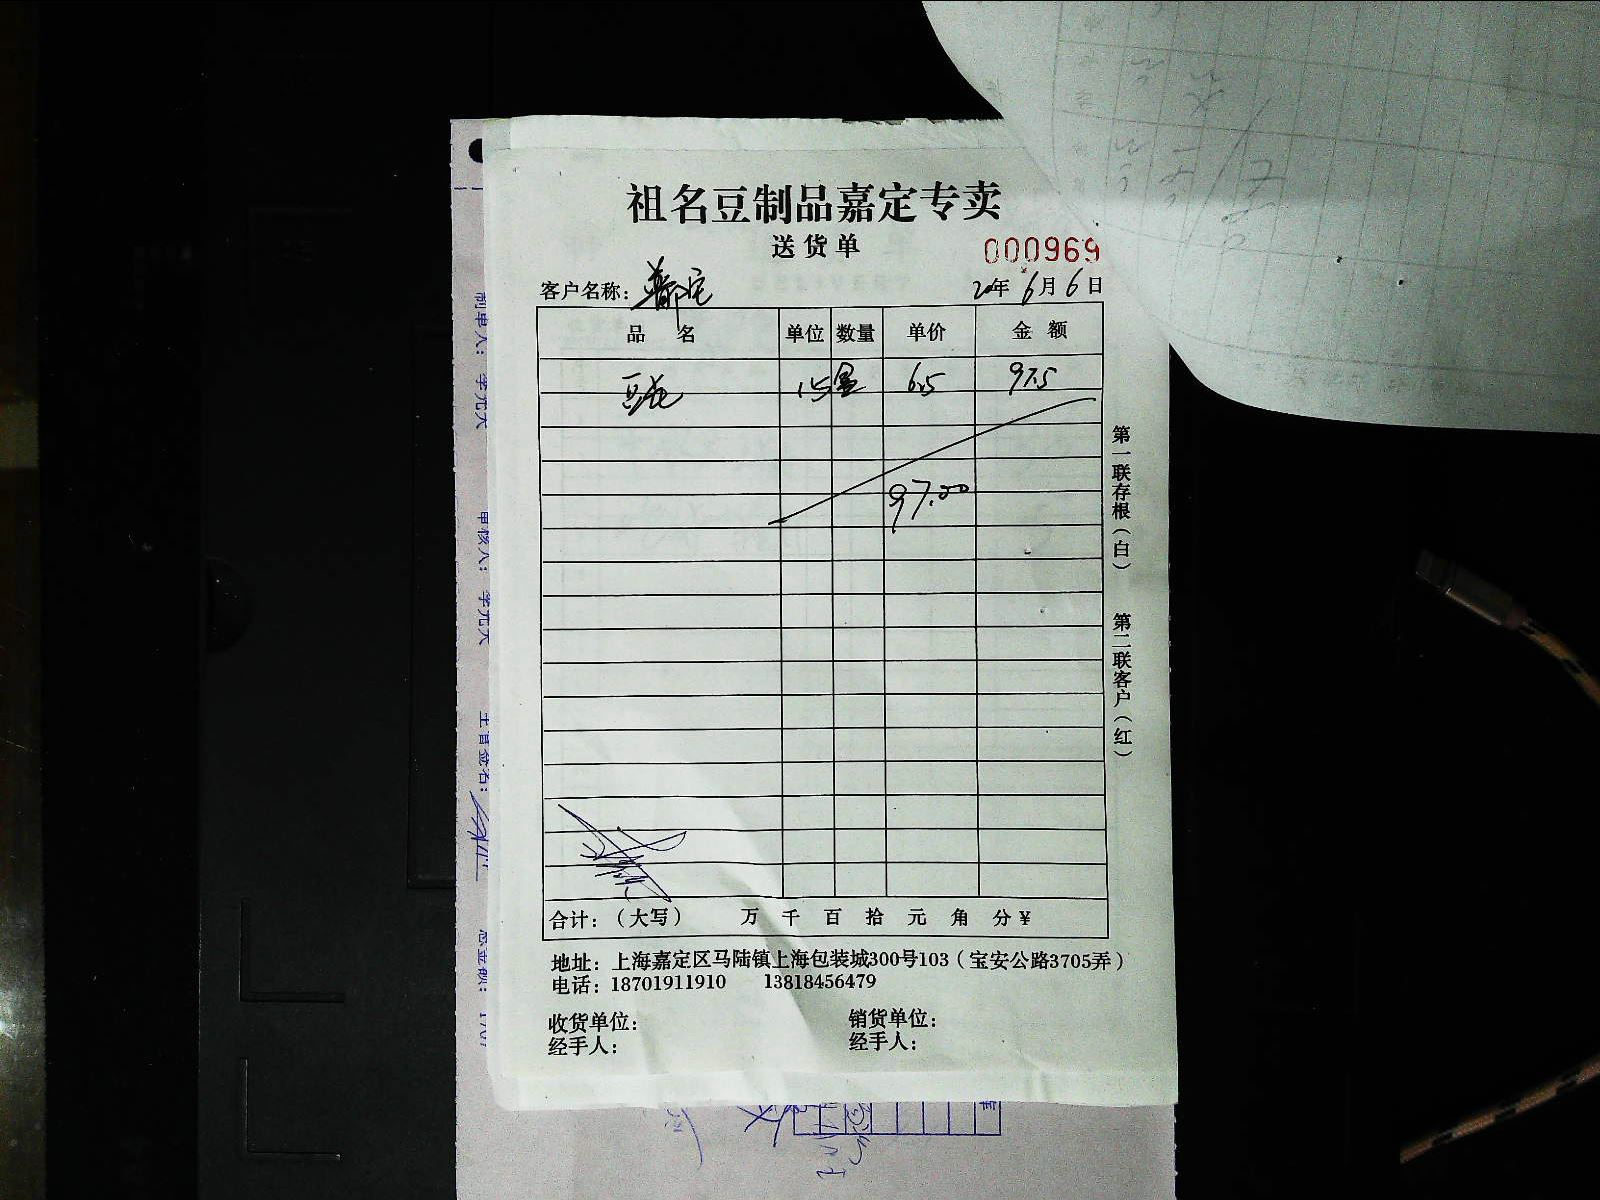 祖名豆制品嘉定专卖
送货单
000969
客户名称：
20年6月6日
品名 单位 数量 单价 金额
豆花 15盒 6.5 97.5
97.00
合计：（大写） 万 千 百 拾 元 角 分 ¥
地址：上海嘉定区马陆镇上海包装城300号103（宝安公路3705弄）
电话：18701911910 13818456479
收货单位： 销货单位：
经手人： 经手人：
第一联存根（白）
第二联客户（红）
制单人：李元大
审核人：李元大
主管签名：
总金额：